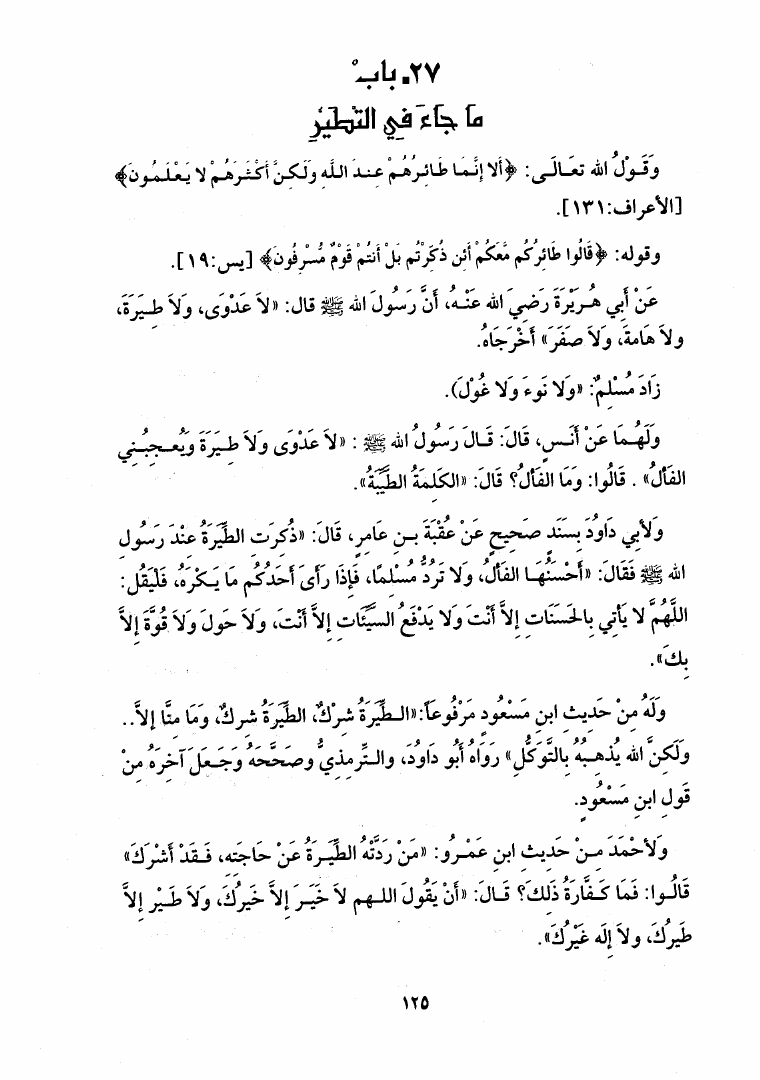 ٢٧. بابٌ
ما جاءَ في التطيُّرِ
وَقَوْلُ الله تعَالَى: ﴿أَلا إِنَّمَا طَائِرُهُمْ عِندَ اللَّهِ وَلَكِنَّ أَكْثَرَهُمْ لا يَعْلَمُونَ﴾
[الأعراف:١٣١].
وقوله: ﴿قَالُوا طَائِرُكُم مَّعَكُمْ أَئِن ذُكِّرْتُم بَلْ أَنتُمْ قَوْمٌ مُّسْرِفُونَ﴾ [يس:١٩].
عَنْ أَبِي هُرَيْرَةَ رَضِيَ الله عَنْهُ، أَنَّ رَسُولَ الله ﷺ قال: «لاَ عَدْوَى، ولاَ طِيَرَةَ،
ولاَ هَامةَ، ولاَ صَفَرَ» أَخْرَجَاهُ.
زَادَ مُسْلِمٌ: «ولَا نَوءَ وَلَا غُولَ).
وَلَهُمَا عَنْ أَنَسٍ، قَالَ: قَالَ رَسُولُ الله ﷺ : «لاَ عَدْوَى وَلاَ طِيَرَةَ وَيُعجِبُنِي
الفَأْلُ» . قَالُوا: وَمَا الفَأْلُ؟ قَالَ: «الكَلِمَةُ الطَّيِّبَةُ».
وَلأَبِي دَاودَ بِسَنَدٍ صَحِيحٍ عَنْ عُقْبَةَ بنِ عامرٍ، قَالَ: «ذُكِرَتِ الطِّيَرَةُ عِنْدَ رَسُولِ
الله ﷺ فَقَالَ: «أَحْسَنُهَا الفَأْلُ، وَلا تَرُدُّ مُسْلِمًا، فَإِذَا رَأَى أَحَدُكُم مَا يَكْرَهُ، فَلْيَقُل:
اللَّهُمَّ لا يَأْتِي بِالحَسَنَاتِ إِلاَّ أَنْتَ وَلا يَدْفَعُ السَّيِّئَاتِ إِلاَّ أَنْتَ، وَلاَ حَولَ وَلاَ قُوَّةَ إِلاَّ
بِكَ».
وَلَهُ مِنْ حَدِيثِ ابنِ مَسْعُودٍ مَرْفُوعَاً:«الطِّيَرَةُ شِرْكٌ، الطِّيَرَةُ شِركٌ، وَمَا مِنَّا إِلاَّ..
وَلَكِنَّ الله يُذهِبُهُ بِالتَّوَكُّلِ» رَوَاهُ أَبُو دَاودَ، والتِّرمذيُّ وصَحَّحَهُ وَجَعَلَ آخِرَهُ مِنْ
قَولِ ابنِ مَسْعُودٍ.
وَلأَحْمَدَ مِنْ حَدِيثِ ابنِ عَمْرو: «مَنْ رَدَّتْهُ الطِّيَرَةُ عَنْ حَاجَتِهِ، فَقَدْ أَشْرَكَ»
قَالُوا: فَمَا كَفَّارَةُ ذَلِكَ؟ قَالَ: «أَنْ يَقُولَ اللهم لاَ خَيرَ إِلاَّ خَيرُكَ، ولاَ طَيْر إِلاَّ
طَيرُكَ، ولاَ إِلَه غَيْرُكَ».
١٢٥